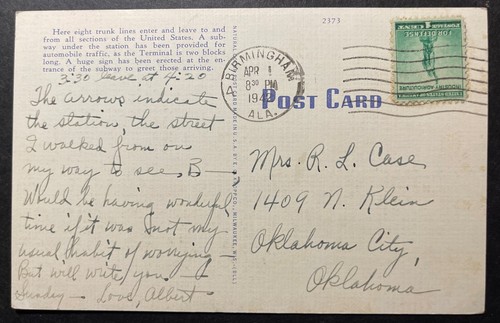 Here eight trunk lines enter and leave to and
from all sections of the United States. A sub-
way under the station has been provided for
automobile traffic, as the Terminal is two blocks
long. A huge sign has been erected at the en-
trance of the subway to greet those arriving.
3:30 leave at 4:20
The arrows indicate
the station, the street
I walked from on
my way to see B—
Would be having wonderful
time if it was not my
usual habit of worrying—
But will write you —
Sunday — Love, Albert
2373
BIRMINGHAM
APR 1
8 30 PM
ALA.
POST CARD
FOR DEFENSE
INDUSTRY AGRICULTURE
Mrs. R. L. Case
1409 N. Klein
Oklahoma City,
Oklahoma